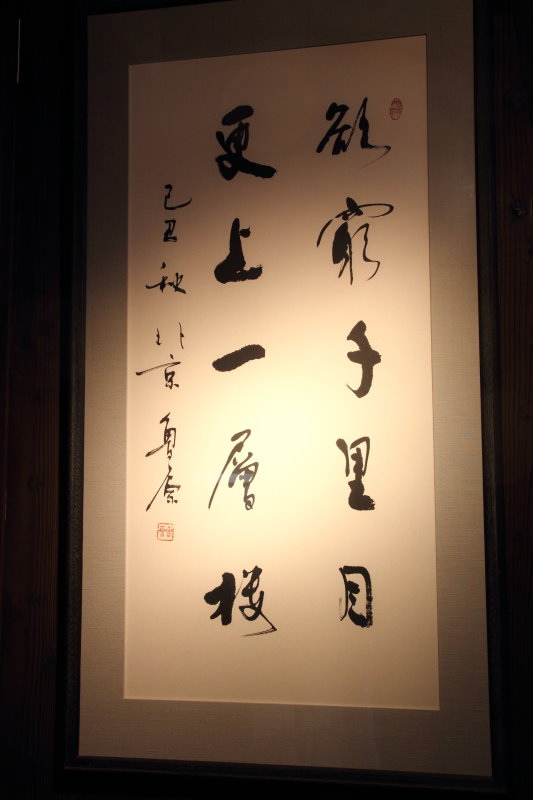 欲窮千里目
更上一層楼
己丑秋北京魯原